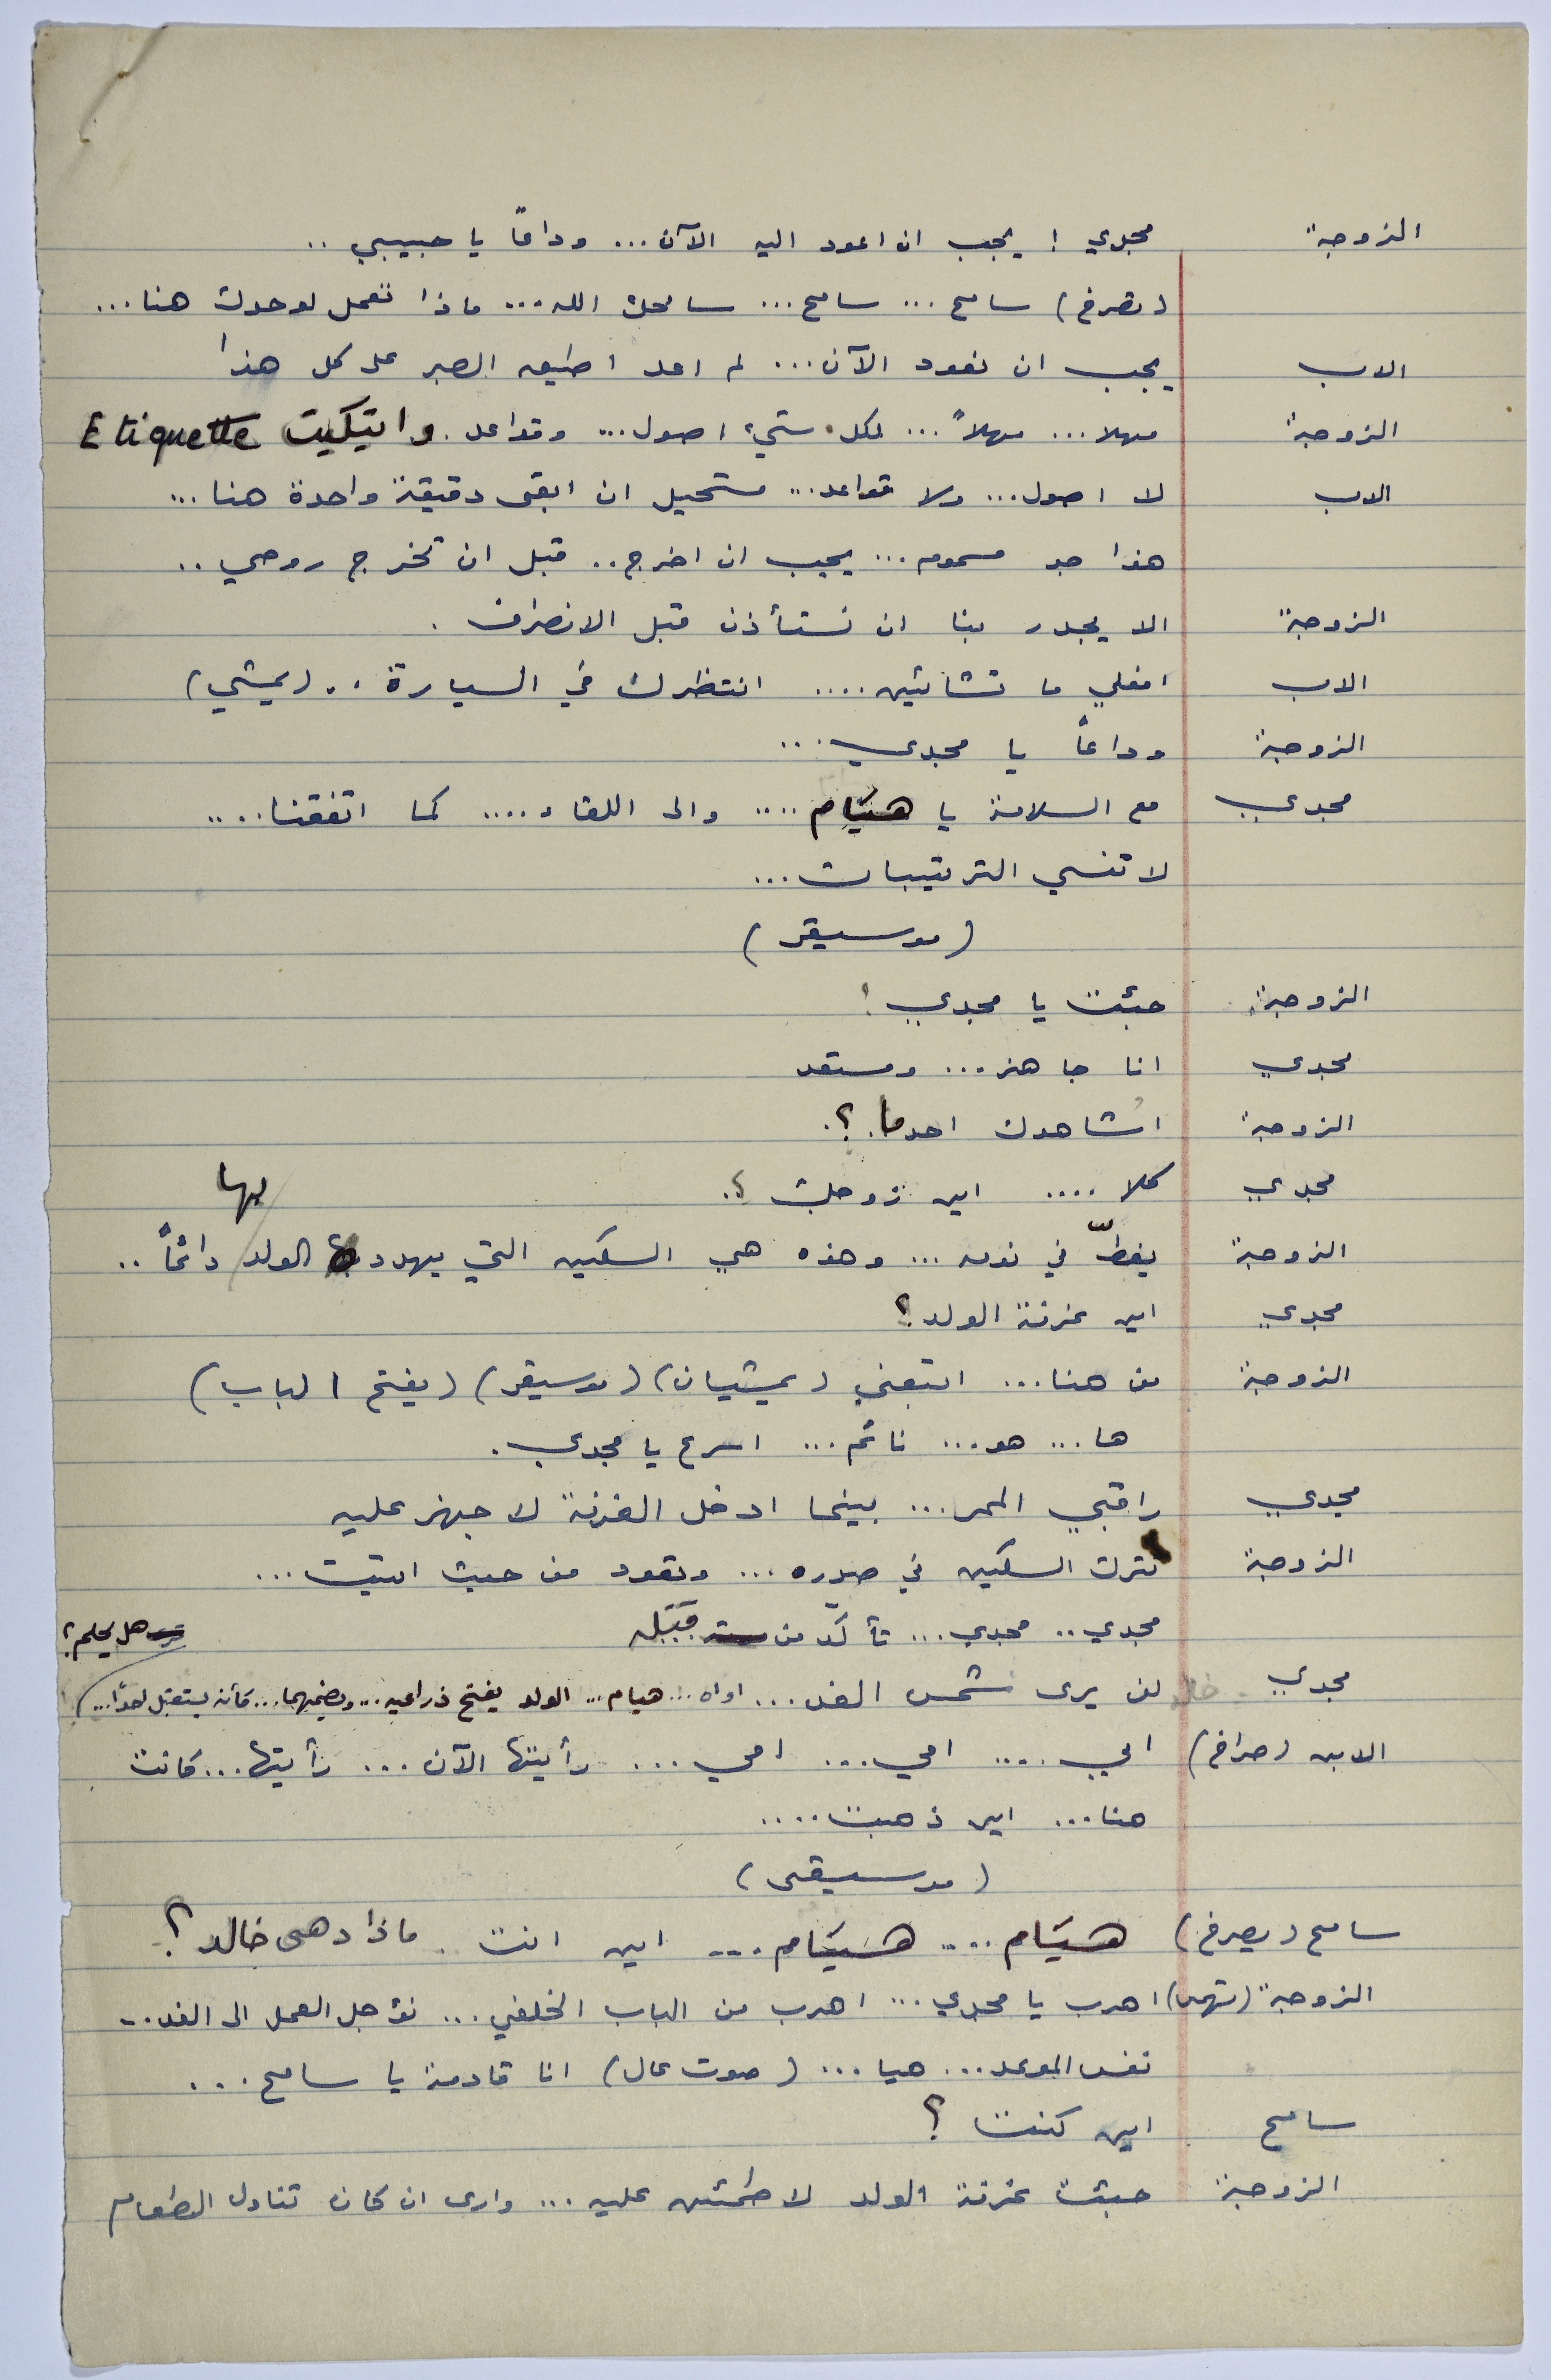 الزوجة مجدي ! يجب ان اعود اليه الآن ... وداعاً يا حبيبي ..
(تصرخ) سامح ... سامح ... سامحك الله ... ماذا تعمل لوحدك هنا ...
الاب يجب ان نعود الآن ... لم اعد اطيق الصبر على كل هذا
الزوجة مهلا ... مهلاً ... لكل شيء اصول ... وقواعد . واتيكيت Etiquette
الاب لا اصول ... ولا قواعد ... مستحيل ان ابقى دقيقة واحدة هنا ...
هذا جو مسموم ... يجب ان اخرج .. قبل ان تخرج روحي ..
الزوجة الا يجدر بنا ان نستأذن قبل الانصراف .
الاب افعلي ما تشائين .... انتظرك في السيارة .. (يمشي)
الزوجة وداعاً يا مجدي ...
مجدي مع السلامة يا هيَام .... والى اللقاء .... كما اتفقنا ....
لا تنسي الترتيبات ...
(موسيقى)
الزوجة جئت يا مجدي !
مجدي انا جاهز ... ومستعد
الزوجة اشاهدك احد ما . ؟
مجدي كلا .... اين زوجك ؟
الزوجة يغطّ في نومه ... وهذه هي السكين التي يهدد بها الولد دائماً ..
مجدي اين غرفة الولد ؟
الزوجة من هنا ... اتبعني (يمشيان) (موسيقى) (يفتح الباب)
ها ... هو ... نائم ... اسرع يا مجدي .
مجدي راقبي الممر ... بينما ادخل الغرفة لاجهز عليه
الزوجة نترك السكين في صدره ... وتعود من حيث اتيت ...
مجدي .. مجدي ... تأكد من قَتْله
هل يحلم ؟
مجدي لن يرى شمس الغد ... اواه ... هيام ... الولد يفتح ذراعيه ... ويضمهما ... كأنه يستقبل احداً ...
الابن (صراخ) ابي .... امي ... امي ... رأيتها الآن ... رأيتها ... كانت
هنا ... اين ذهبت ....
(موسيقى)
سامح (يصرخ) هيَام .... هيَام ... اين انت . ماذا دهى خالد ؟
الزوجة (تهمس) اهرب يا مجدي ... اهرب من الباب الخلفي ... نؤجل العمل الى الغد ..
نفس الموعد ... هيا ... (صوت عال) انا قادمة يا سامح ...
سامح اين كنت ؟
الزوجة جئت غرفة الولد لاطمئن عليه ... وارى ان كان تناول الطعام